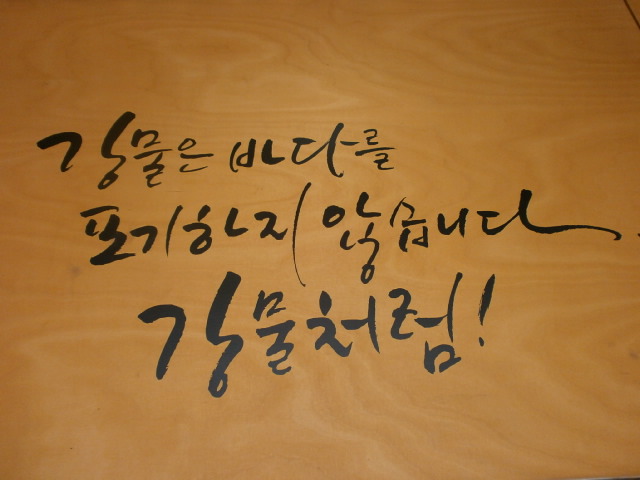 강물은 바다를
포기하지 않습니다
강물처럼!